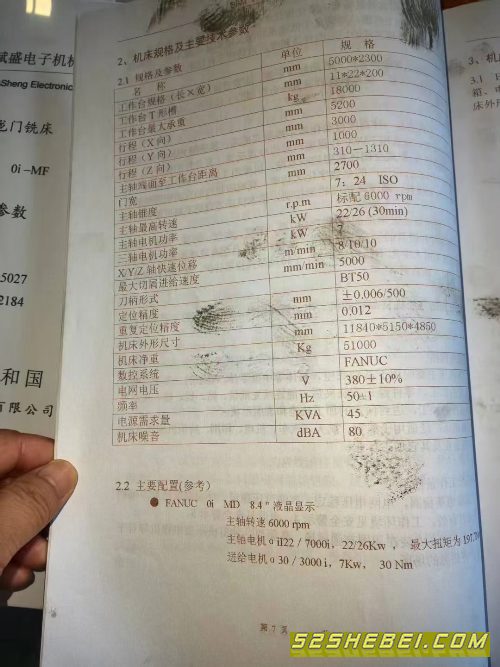 盛电子机
Sheng Electronic
门铣床
0i-MF
参数
5027
2184
和国
有限公司
2、机床规格及主要技术参数
2.1 规格及参数
名 称 单位 规 格
工作台规格（长×宽） mm 5000*2300
工作台T形槽 mm 11*22*200
工作台最大承重 kg 18000
行程（X向） mm 5200
行程（Y向） mm 3000
行程（Z向） mm 1000
主轴端面至工作台距离 mm 310-1310
门宽 mm 2700
主轴锥度 7：24 ISO
主轴最高转速 r.p.m 标配6000 rpm
主轴电机功率 kW 22/26 (30min)
三轴电机功率 kW 7
X/Y/Z轴快速位移 m/min 8/10/10
最大切屑进给速度 mm/min 5000
刀柄形式 BT50
定位精度 mm ±0.006/500
重复定位精度 mm 0.012
机床外形尺寸 mm 11840*5150*4850
机床净重 Kg 51000
数控系统 FANUC
电网电压 V 380±10%
频率 Hz 50±1
电源需求量 KVA 45
机床噪音 dBA 80
2.2 主要配置(参考)
● FANUC 0i MD 8.4"液晶显示
主轴转速6000 rpm
主轴电机αiI22/7000i，22/26Kw ， 最大扭矩为197.7
送给电机α30/3000i，7Kw， 30 Nm
第 7 页
3、机
3.1
箱、电
床外
52SHEBEI.COM